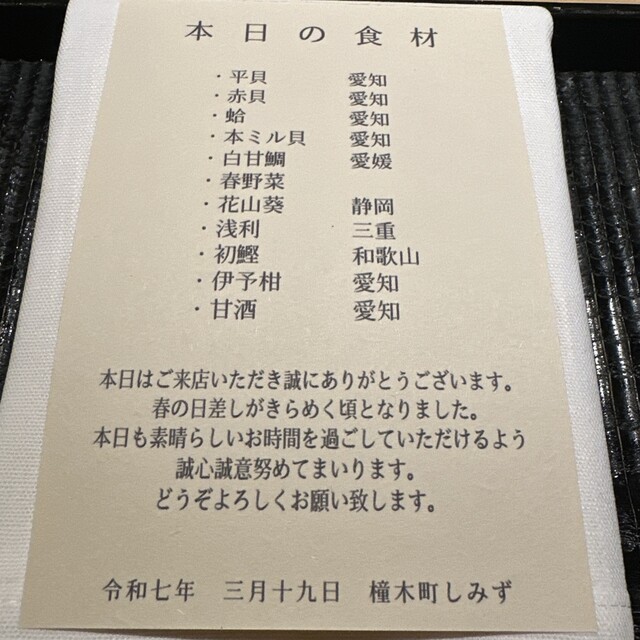 本日の食材
・平貝 愛知
・赤貝 愛知
・蛤 愛知
・本ミル貝 愛知
・白甘鯛 愛媛
・春野菜
・花山葵 静岡
・浅利 三重
・初鰹 和歌山
・伊予柑 愛知
・甘酒 愛知
本日はご来店いただき誠にありがとうございます。
春の日差しがきらめく頃となりました。
本日も素晴らしいお時間を過ごしていただけるよう
誠心誠意努めてまいります。
どうぞよろしくお願い致します。
令和七年 三月十九日 橦木町しみず